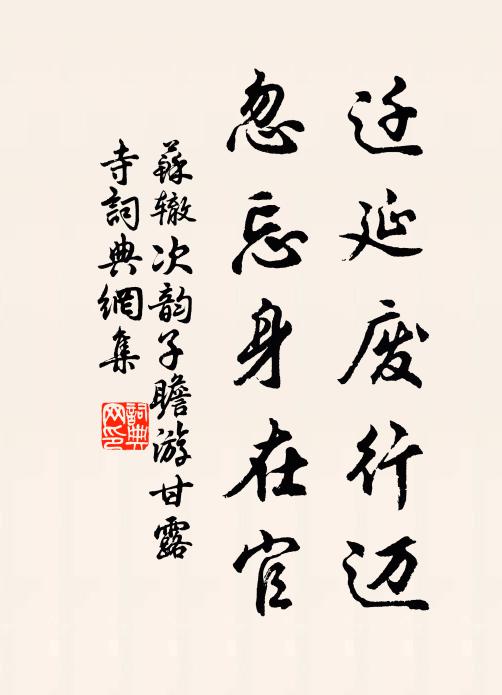 迁延废行迈
忽忘身在官
蘇辙次韵子瞻游甘露
寺詞典網集
詞典网印